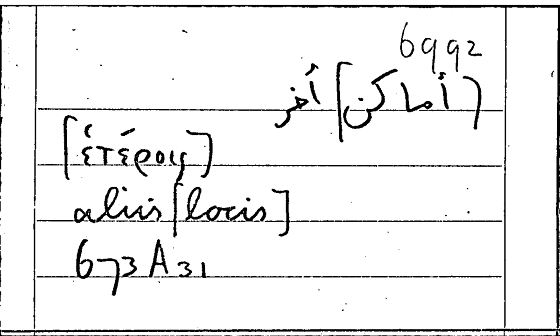 6992
[أماكن] أخر
[ἑτέροις]
aliis [locis]
673A31